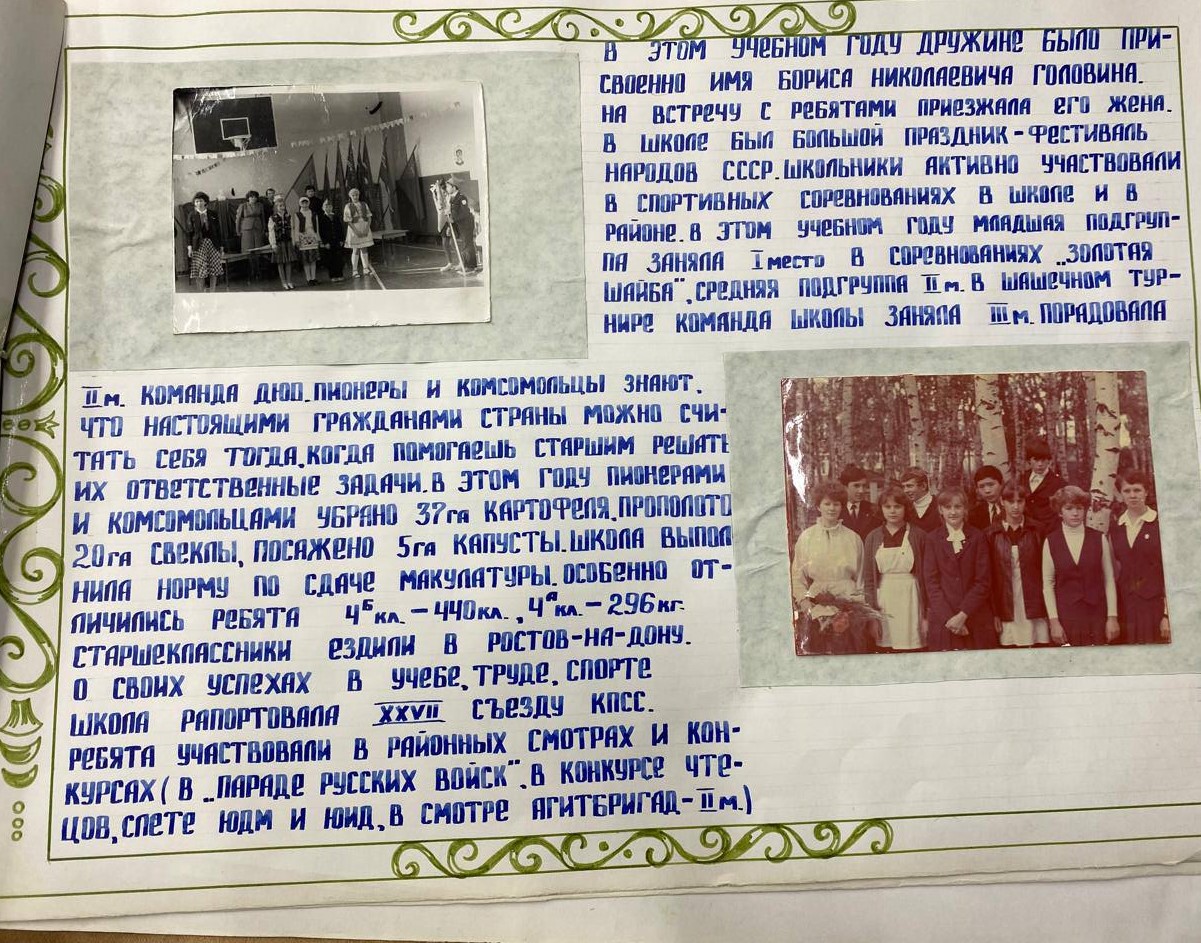 В ЭТОМ УЧЕБНОМ ГОДУ ДРУЖИНЕ БЫЛО ПРИ-
СВОЕННО ИМЯ БОРИСА НИКОЛАЕВИЧА ГОЛОВИНА.
НА ВСТРЕЧУ С РЕБЯТАМИ ПРИЕЗЖАЛА ЕГО ЖЕНА.
В ШКОЛЕ БЫЛ БОЛЬШОЙ ПРАЗДНИК-ФЕСТИВАЛЬ
НАРОДОВ СССР. ШКОЛЬНИКИ АКТИВНО УЧАСТВОВАЛИ
В СПОРТИВНЫХ СОРЕВНОВАНИЯХ В ШКОЛЕ И В
РАЙОНЕ. В ЭТОМ УЧЕБНОМ ГОДУ МЛАДШАЯ ПОДГРУП-
ПА ЗАНЯЛА I место В СОРЕВНОВАНИЯХ „ЗОЛОТАЯ
ШАЙБА", СРЕДНЯЯ ПОДГРУППА II м. В ШАШЕЧНОМ ТУР-
НИРЕ КОМАНДА ШКОЛЫ ЗАНЯЛА III м. ПОРАДОВАЛА
II м. КОМАНДА ДЮП. ПИОНЕРЫ И КОМСОМОЛЬЦЫ ЗНАЮТ,
ЧТО НАСТОЯЩИМИ ГРАЖДАНАМИ СТРАНЫ МОЖНО СЧИ-
ТАТЬ СЕБЯ ТОГДА, КОГДА ПОМОГАЕШЬ СТАРШИМ РЕШАТЬ
ИХ ОТВЕТСТВЕННЫЕ ЗАДАЧИ. В ЭТОМ ГОДУ ПИОНЕРАМИ
И КОМСОМОЛЬЦАМИ УБРАНО 37га КАРТОФЕЛЯ, ПРОПОЛОТО
20га СВЕКЛЫ, ПОСАЖЕНО 5га КАПУСТЫ. ШКОЛА ВЫПОЛ
НИЛА НОРМУ ПО СДАЧЕ МАКУЛАТУРЫ. ОСОБЕННО ОТ-
ЛИЧИЛИСЬ РЕБЯТА 4Б кл. – 440кл., 4А кл. – 296кг.
СТАРШЕКЛАССНИКИ ЕЗДИЛИ В РОСТОВ-НА-ДОНУ.
О СВОИХ УСПЕХАХ В УЧЕБЕ, ТРУДЕ, СПОРТЕ
ШКОЛА РАПОРТОВАЛА XXVII СЪЕЗДУ КПСС.
РЕБЯТА УЧАСТВОВАЛИ В РАЙОННЫХ СМОТРАХ И КОН-
КУРСАХ ( В „ПАРАДЕ РУССКИХ ВОЙСК", В КОНКУРСЕ ЧТЕ-
ЦОВ, СЛЕТЕ ЮДМ И ЮИД, В СМОТРЕ АГИТБРИГАД- II м.)